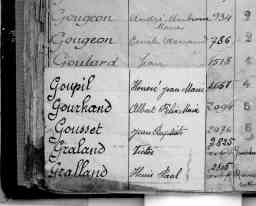 Gougeon André Ambroise 934 2
Marie
Gougeon Camille Armand 786 2
Goulard Jean 1518 4
Goupil Honoré Jean Marie 1068 4
Gourhand Albert Félix Marie 2094 5
Gousset Jean Baptiste 2036 5
Graland Victor 2825
Gralland Henri Paul